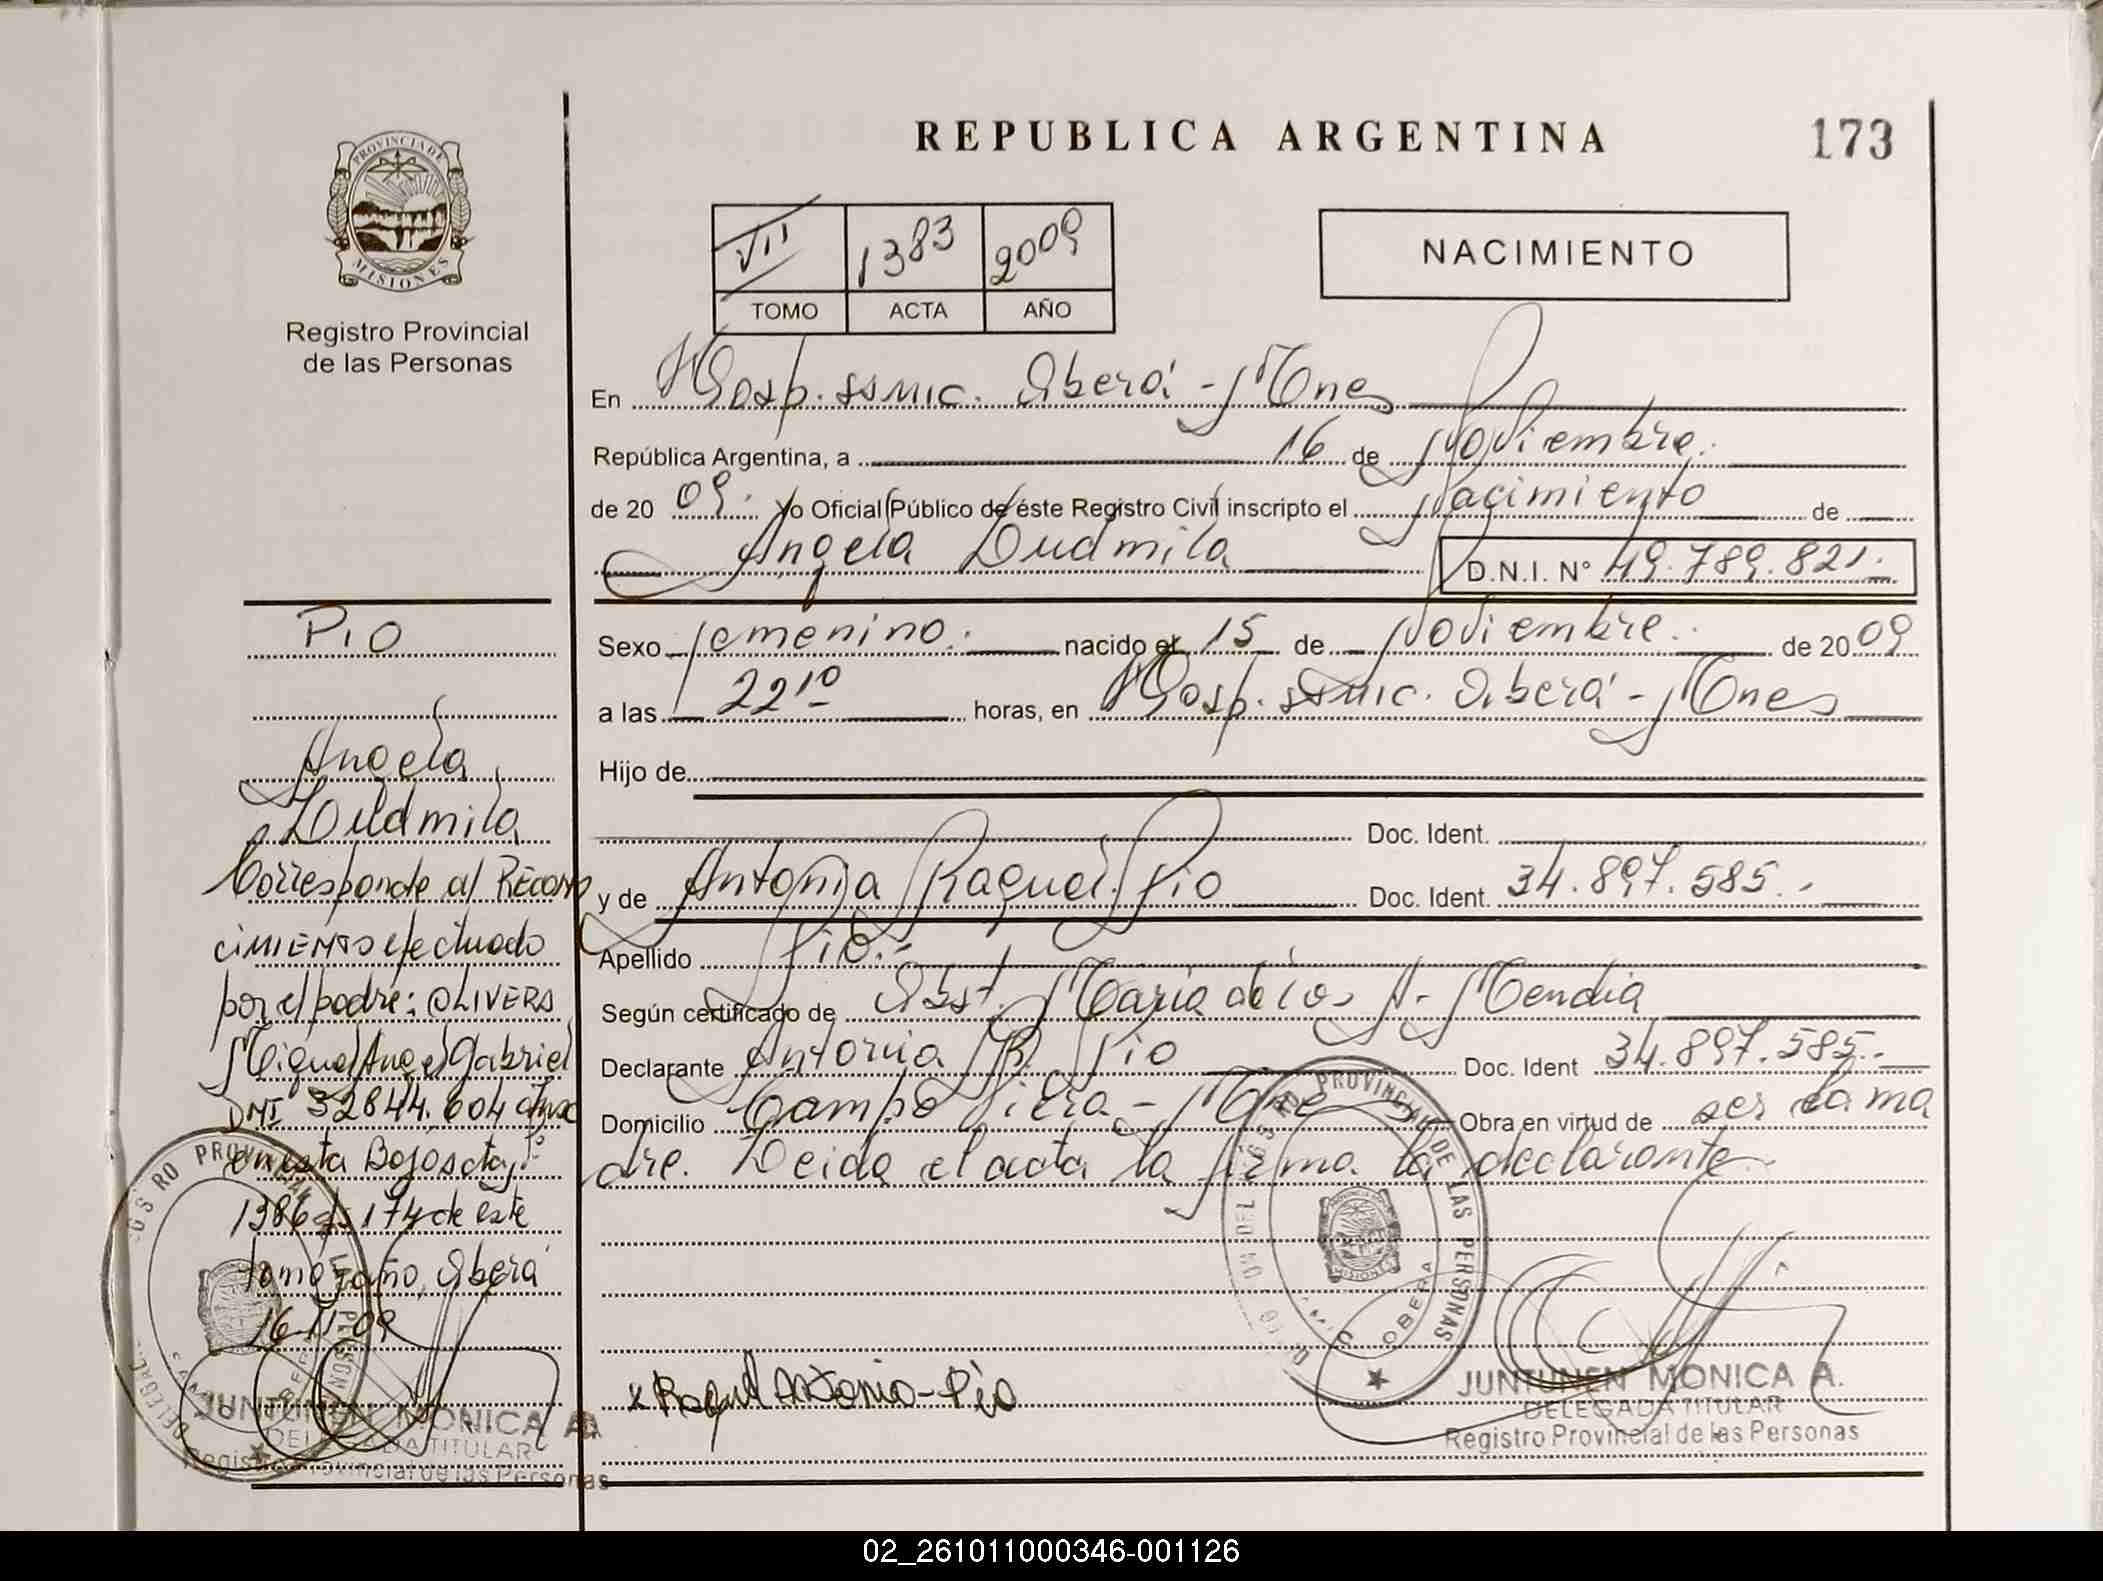 REPUBLICA ARGENTINA
173
PROVINCIA DE
MISIONES
Registro Provincial
de las Personas
VII 1383 2009
TOMO ACTA AÑO
NACIMIENTO
En Hosp. ssmic. Oberá - Mnes
República Argentina, a 16 de Noviembre.
de 20 09. Yo Oficial Público de éste Registro Civil inscripto el Nacimiento de
Angela Ludmila
D.N.I. N° 49.789.821.
Sexo femenino. nacido el 15 de Noviembre. de 20 09
a las 22 10 horas, en Hosp. ssmic. Oberá - Mnes
Hijo de
Doc. Ident.
y de Antonia Raquel Pio Doc. Ident. 34.897.585.-
Apellido Pio.-
Según certificado de Obst. Maria de los A. Mendia
Declarante Antonia R. Pio Doc. Ident 34.897.585.-
Domicilio Campo Viera - Mnes Obra en virtud de ser la ma
dre. Leida el acta la firma la declarante.
x Raquel Antonia - Pio
JUNTUNEN MONICA A.
DELEGADA TITULAR
Registro Provincial de las Personas
PROVINCIAL DE LAS PERSONAS
OBERA
PIO
Angela
Ludmila
Corresponde al RECONO
CIMIENTO efectuado
por el padre: OLIVERA
Miguel Angel Gabriel
DNI 32844.604
en esta Bajo acta N°
1386 fs 174 de este
tomo y año, Oberá
16-11-09
JUNTUNEN MONICA A.
DELEGADA TITULAR
Registro Provincial de las Personas
02_261011000346-001126